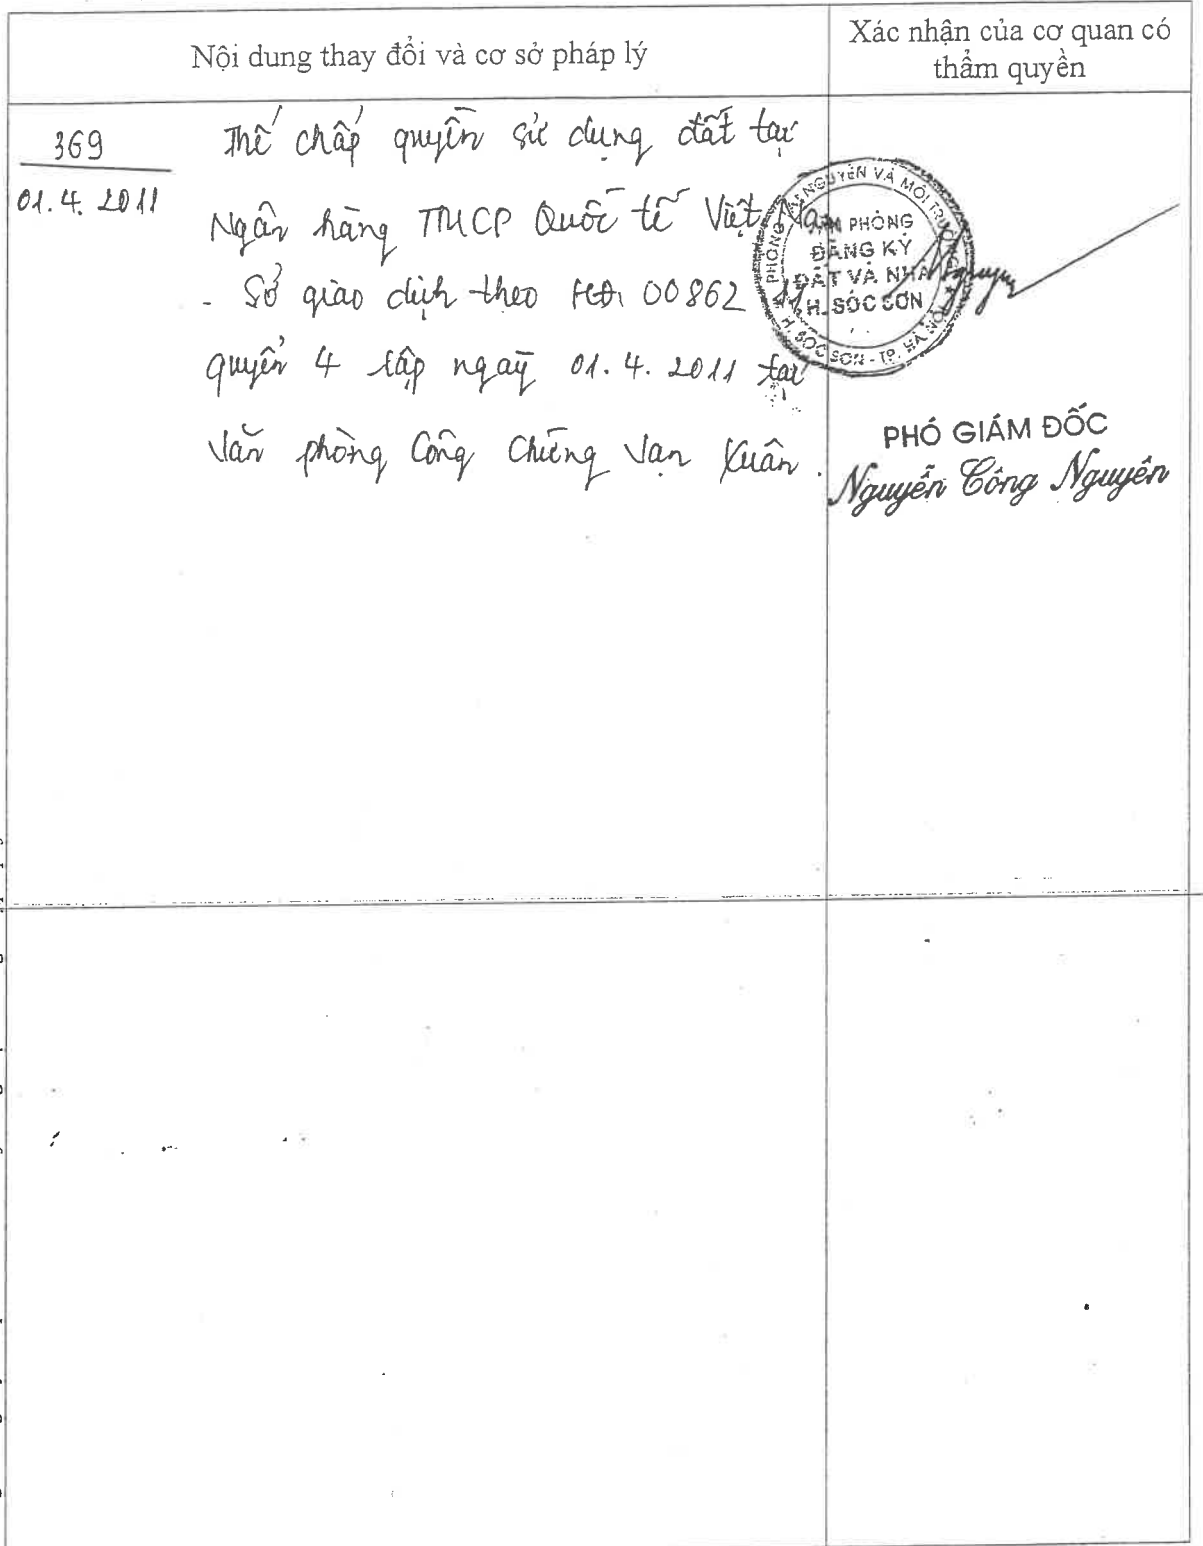 Nội dung thay đổi và cơ sở pháp lý
Xác nhận của cơ quan có
thẩm quyền
369
01.4.2011
Thế chấp quyền sử dụng đất tại
Ngân hàng TMCP Quốc tế Việt Nam
- Sở giao dịch theo HĐ 00862
quyển 4 lập ngày 01.4.2011 tại
Văn phòng Công Chứng Vạn Xuân.
PHÒNG TÀI NGUYÊN VÀ MÔI TRƯỜNG
VĂN PHÒNG
ĐĂNG KÝ
ĐẤT VÀ NHÀ
H. SÓC SƠN
H. SÓC SƠN - TP. HÀ NỘI
PHÓ GIÁM ĐỐC
Nguyễn Công Nguyên